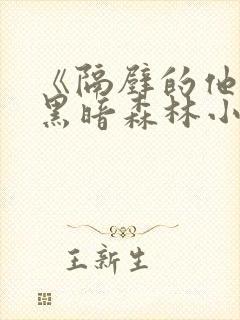 《隔壁的他
黑暗森林小
王新生